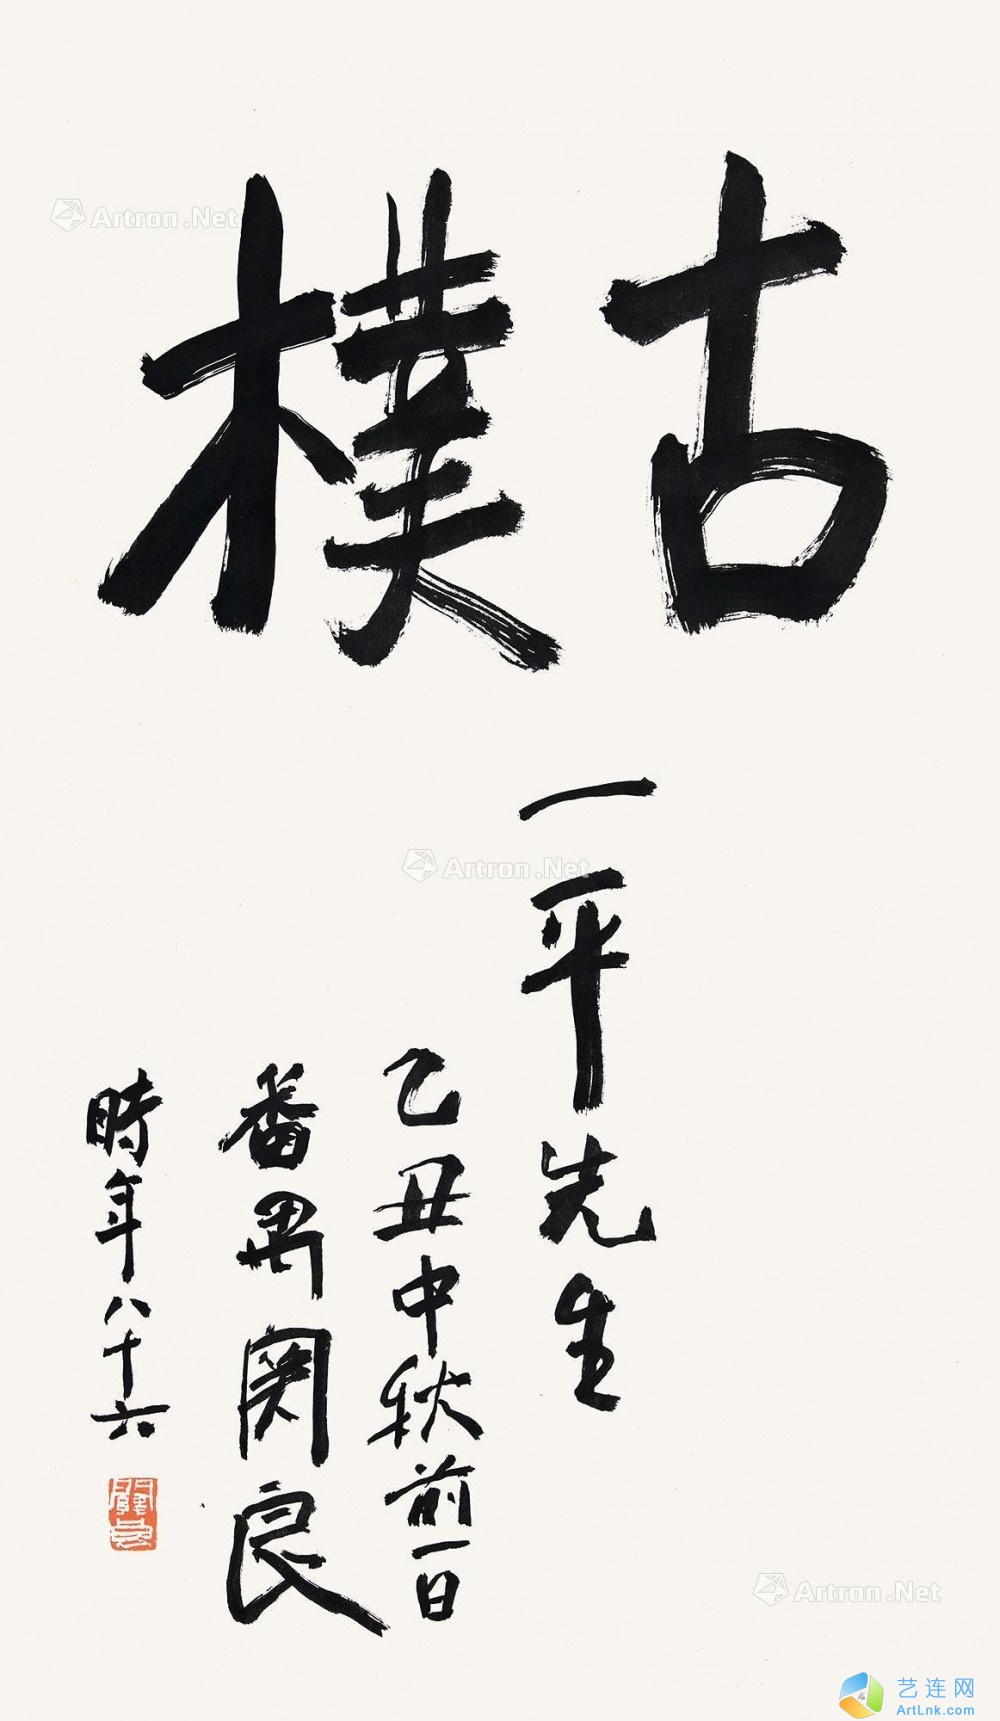 古樸
一平先生
乙丑中秋前一日
番禺関良
時年八十六
關良
Artron.Net
Artron.Net
Artron.Net
艺连网
ArtLnk.com